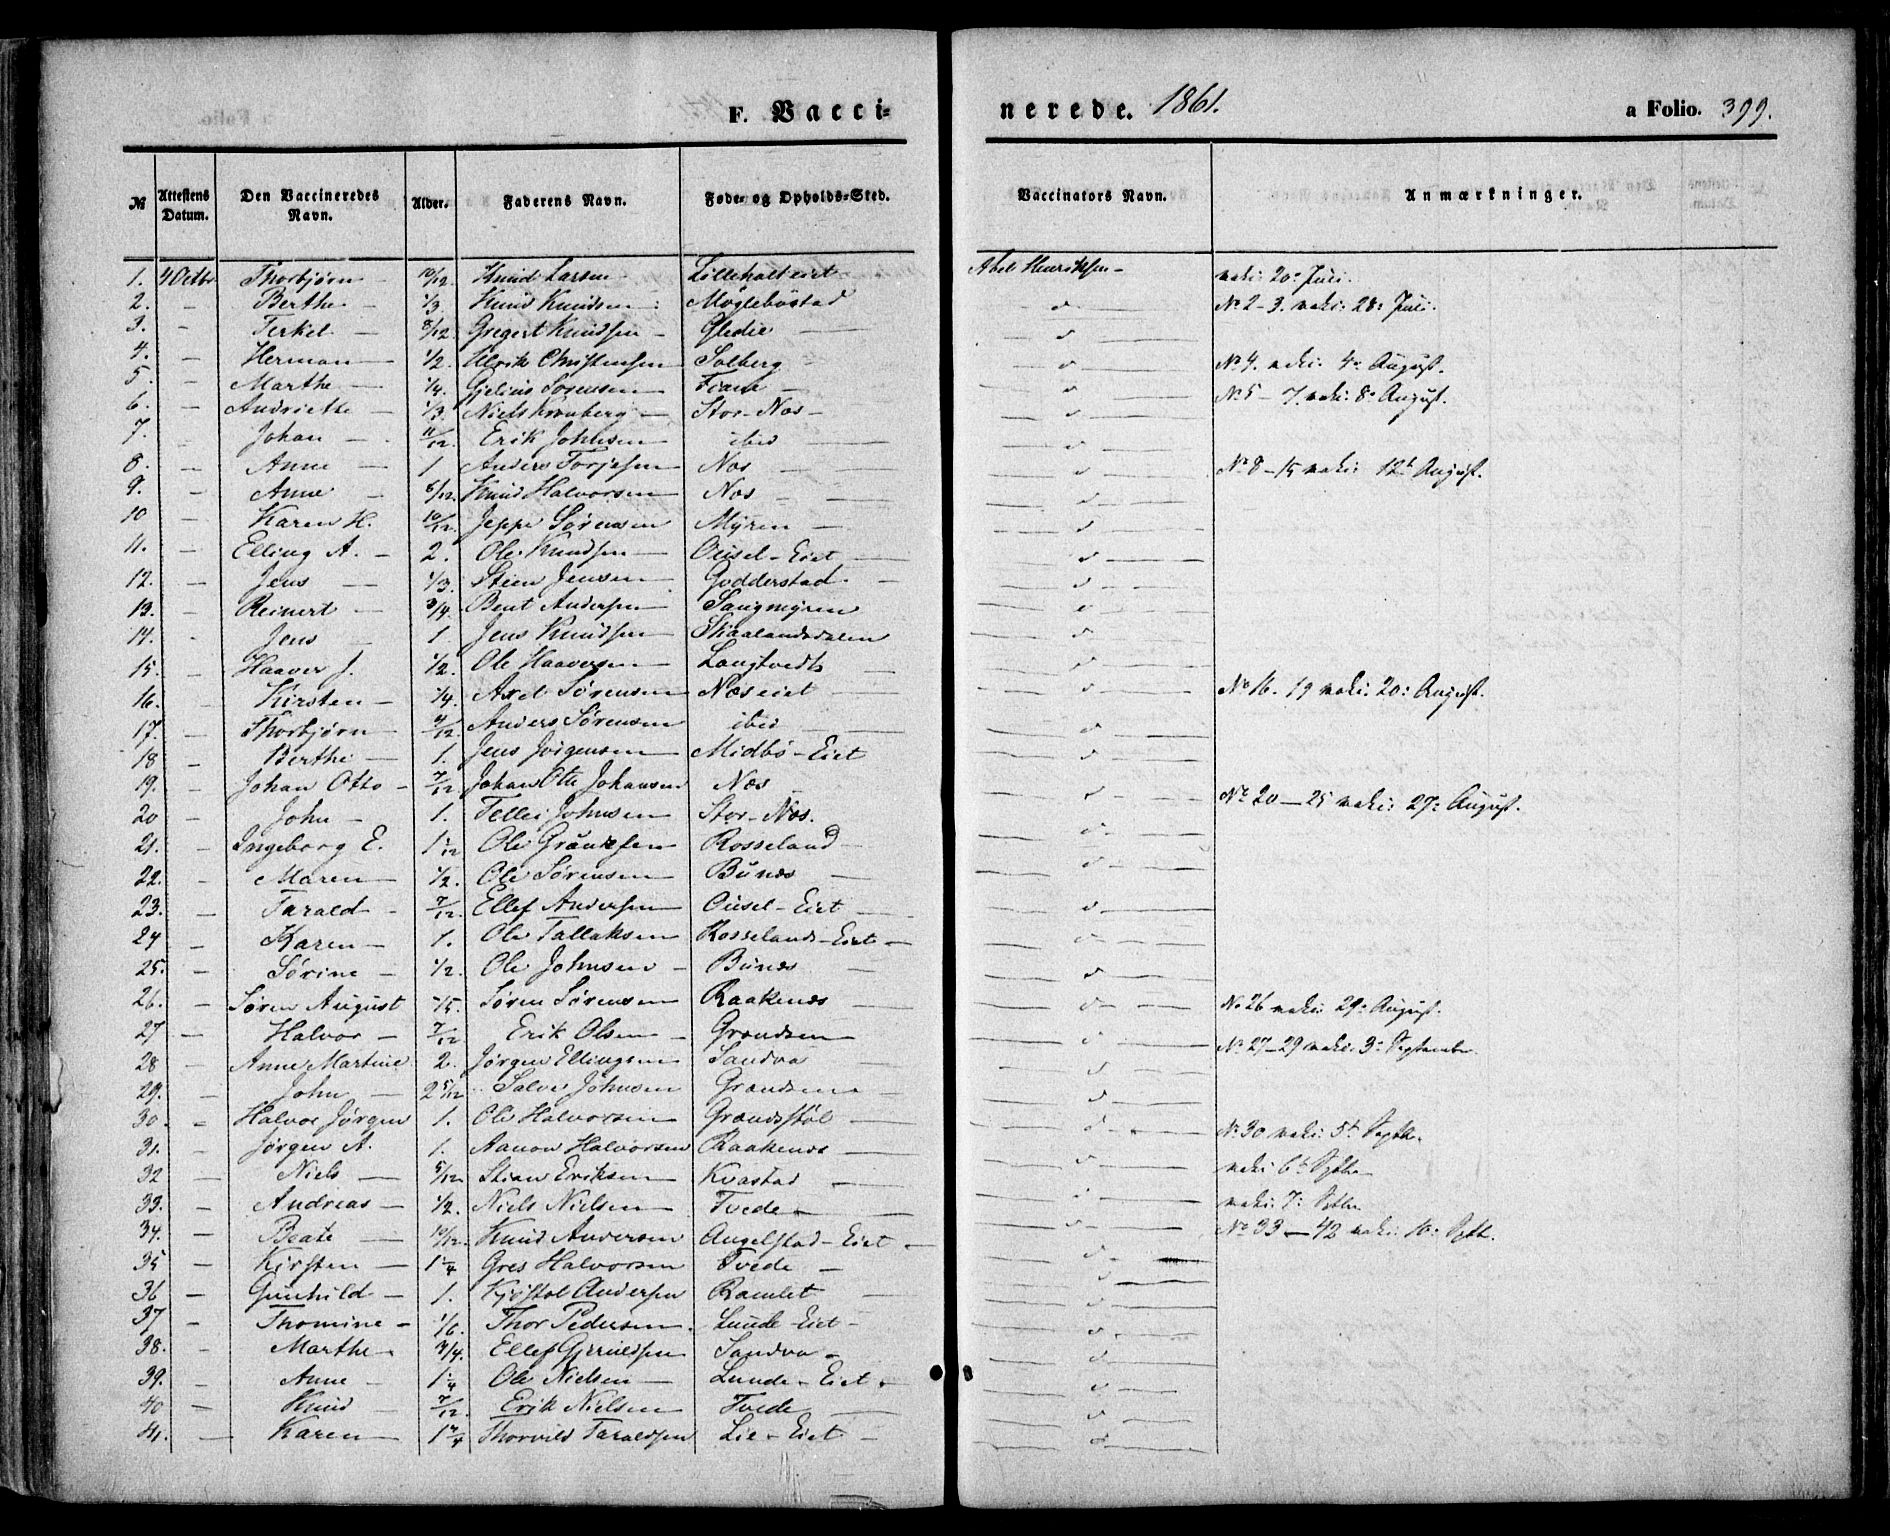 F. Vacci-
nerede. 1861.
a Folio. 399.
№ | Attestens Datum. | Den Vaccineredes Navn. | Alder. | Faderens Navn. | Føde- og Opholds-Sted. | Vaccinators Navn. | Anmærkninger.
1. 4 Octbr Thorbjørn 10/12. Knud Larsen Lilleholt eiet Abel Henriksen vaki: 20de Juli.
2. — Berthe 1/3 Knud Knudsen Møglebøstad — No 2-3. vaki: 28: Juli.
3. — Terkel — 8/12. Gregert Knudsen Gledie —
4. — Herman 1/2. Ulrik Christensen Solberg — No 4. vaki: 4de August.
5. — Marthe — 1/4. Gjelius Sørensen Fiane — No 5 - 7. vaki: 8de August.
6. — Andriette — 1/3. Niels Kronberg — Stor-Næs —
7. — Johan — 11/12. Erik Johnsen ibid
8. — Anne — 1 Anders Torjesen Næs — No 8-15 vaki: 12te August.
9. — Anne — 8/12. Knud Halvorsen Næs —
10 — Karen K. 10/12. Jeppe Sørensen Myren —
11. — Elling A. — 2. Ole Knudsen Ousel-Eiet
12. — Jens — 1/3. Stien Jensen Godderstad. —
13. — Reinert — 3/4. Bent Andersen Sangmyren
14. - Jens 1. Jens Knudsen Skaalandsdalen
15. — Haaver J. 1/2. Ole Haaversen Langtvedt
16. — Kirsten — 1/4. Axel Sørensen Næs eiet No 16. 19 vaki: 20: August.
17. — Thorbjørn 4/12. Anders Sørensen ibid
18 — Berthe — 1. Jens Jørgensen Midbø-Eiet
19. — Johan Otto - 7/12 Johan Otte Johansen Næs
20 — John — 1. Tellei Johnsen Stor-Næs. No 20-25 vaki: 27: August.
21. — Ingeborg E. 1 1/12 Ole Grundesen Rosseland —
22. — Maren — 1/2. Ole Sørensen Bunæs
23. — Tarald — 7/12. Ellef Andersen Ousel-Eiet
24 — Karen — 1. Ole Tallaksen Rosselands-Eiet —
25. — Sørine — 1/2. Ole Johnsen — Bunæs
26. — Søren August 1/5. Søren Sørensen Raakenæs No 26 vaki: 29: August.
27 — Halvor — 7/12 Erik Olsen — Grændsen
28 — Anne Martine 2. Jørgen Ellingsen Sandva No 27-29 vaki: 3: September
29. — John — 2 5/12 Salve Johnsen Grændsen
30. — Halvor Jørgen 1. Ole Halvorsen Grændsstøl No 30 vaki: 5te Septbr.
31. — Jørgen A. 1. Aanon Halvorsen Raakenæs
32 — Niels — 5/12 Stian Eriksen Kvastad vaki 6te Sptbr
33. — Andreas — 1/2. Niels Nielsen Tvede — vaki: 7: Sptbr
34. — Beate 10/12. Knud Andersen Angelstad-Eiet — No 33-42 vaki: 10: Sptb.
35 — Kirsten — 1 1/4 Gres Halvorsen Tvede —
36 — Gunhild — 1. Kjøstol Andersen Ramlet
37 — Thomine - 1/6. Thor Pedersen. Lunde-Eiet —
38. — Marthe 3/4. Ellef Gjeruldsen Sandva —
39. — Anne — 1 1/4 Ole Nielsen — Lunde-Eiet.
40 — Knud — 7/12. Erik Nielsen Tvede
41. — Karen — 1 2/4 Thorvild Taraldsen Lie-Eiet —